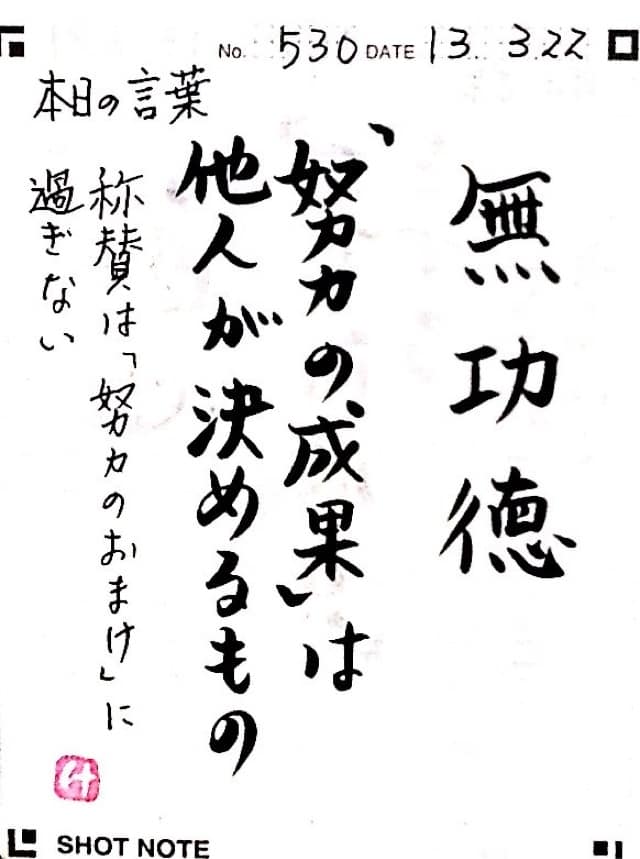 No. 530 DATE 13. 3.22
本日の言葉
無功徳
「努力の成果」は
他人が決めるもの
称賛は「努力のおまけ」に
過ぎない
SHOT NOTE